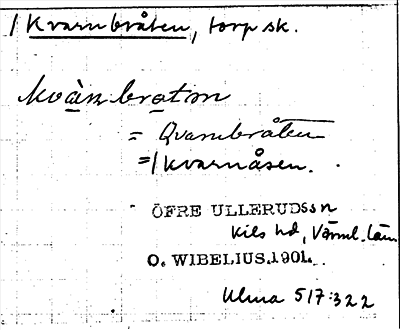 / Kvarnbråten, torp sk.
kvàn bratṇ
= Qvarnbråten
=/ kvarnåsen.
ÖFRE ULLERUDSsn
Kils hd, Värml. län
O. WIBELIUS.1901.
Ulma 517:322